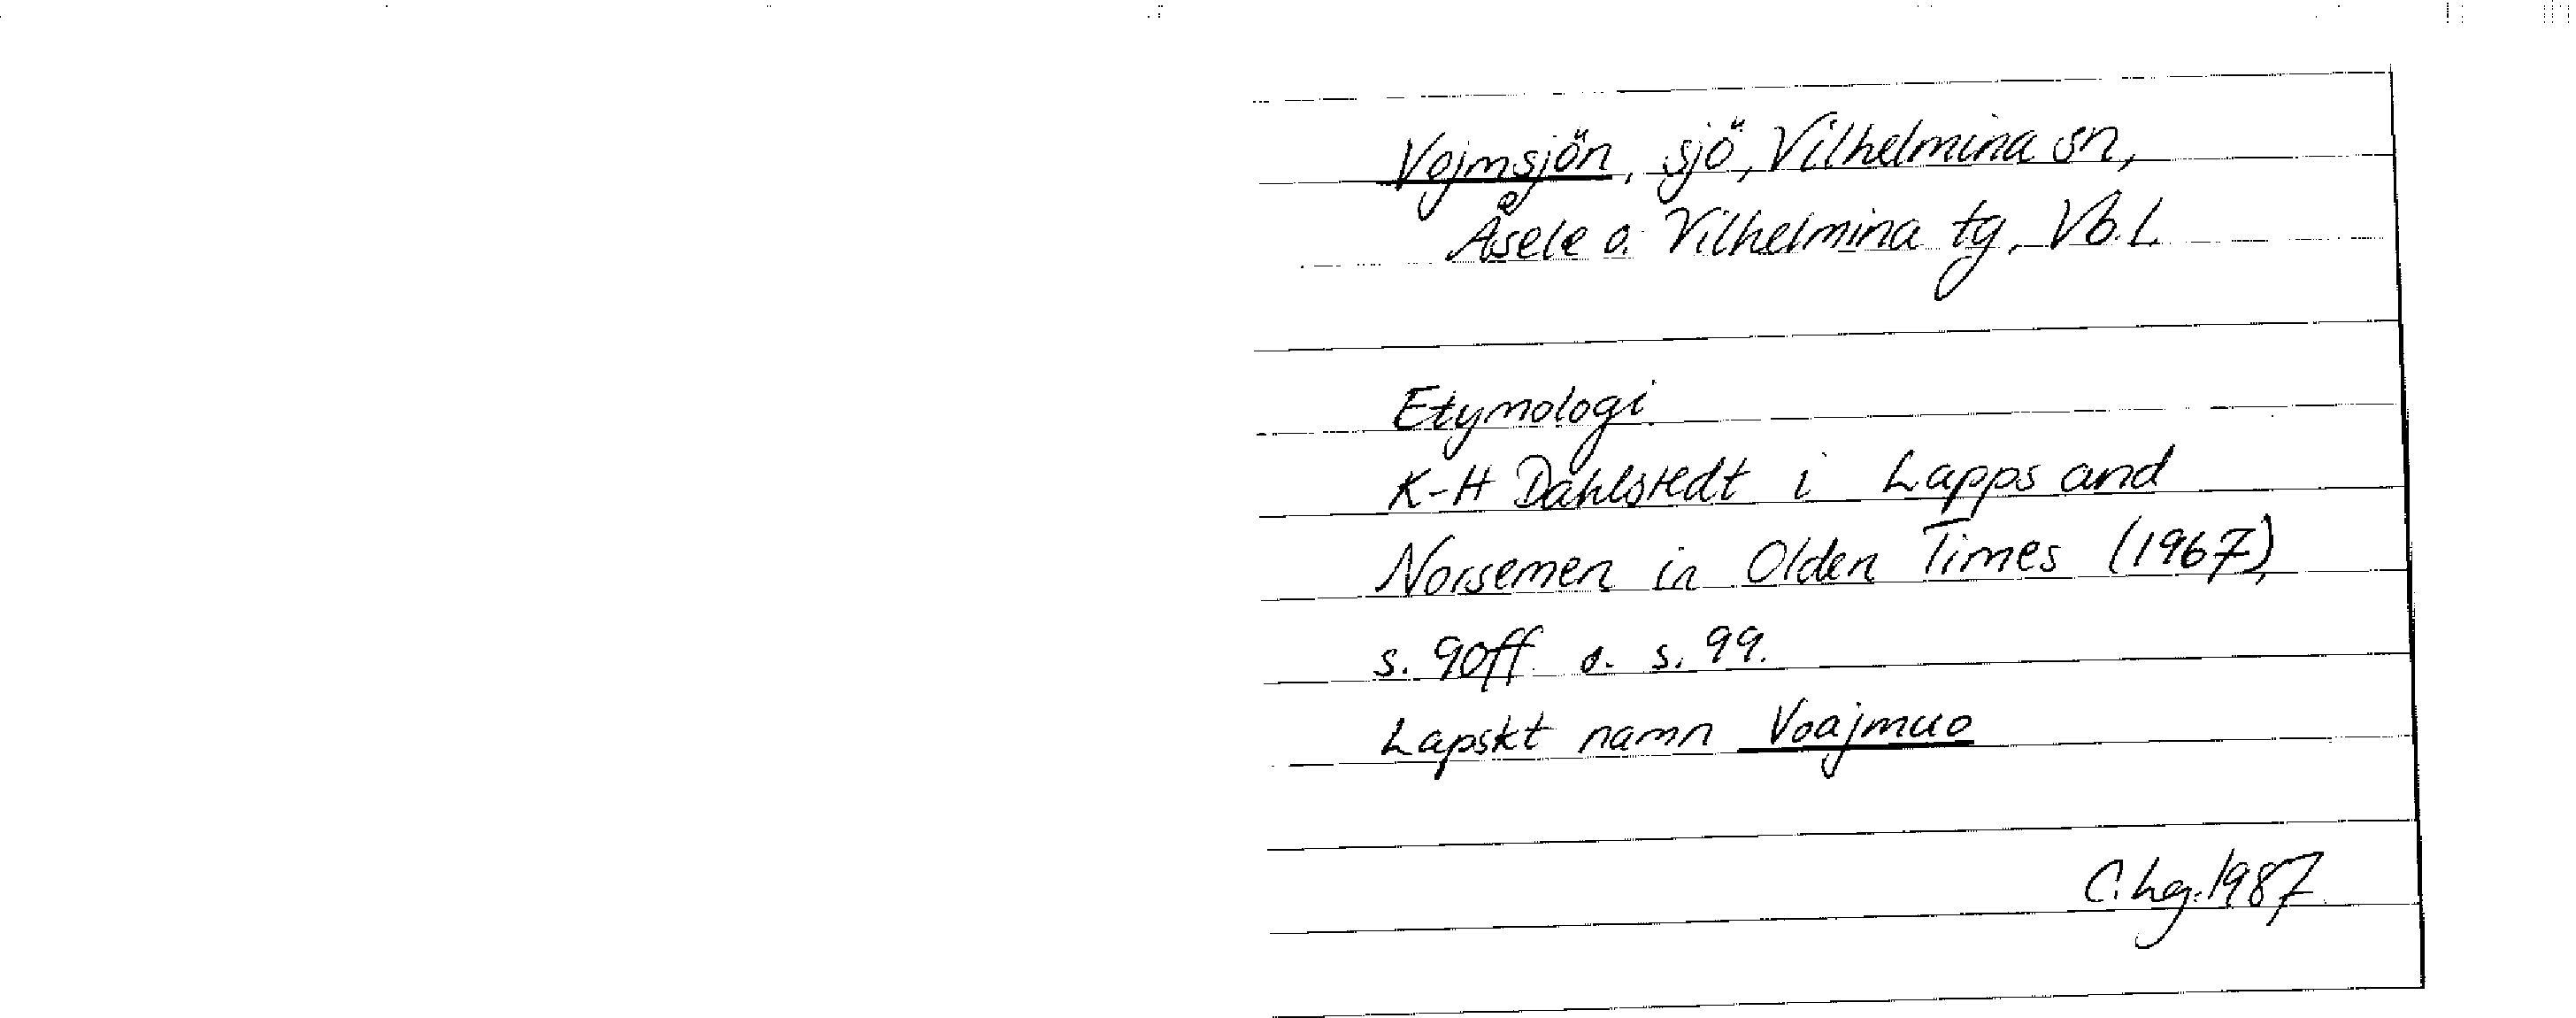 Vojmsjön, sjö, Vilhelmina sn,
Åsele o. Vilhelmina tg, Vb.L.
Etymologi
K-H Dahlstedt i Lapps and
Norsemen in Olden Times (1967),
s. 90ff o. s. 99.
Lapskt namn Voajmuo
C. Lg. 1987